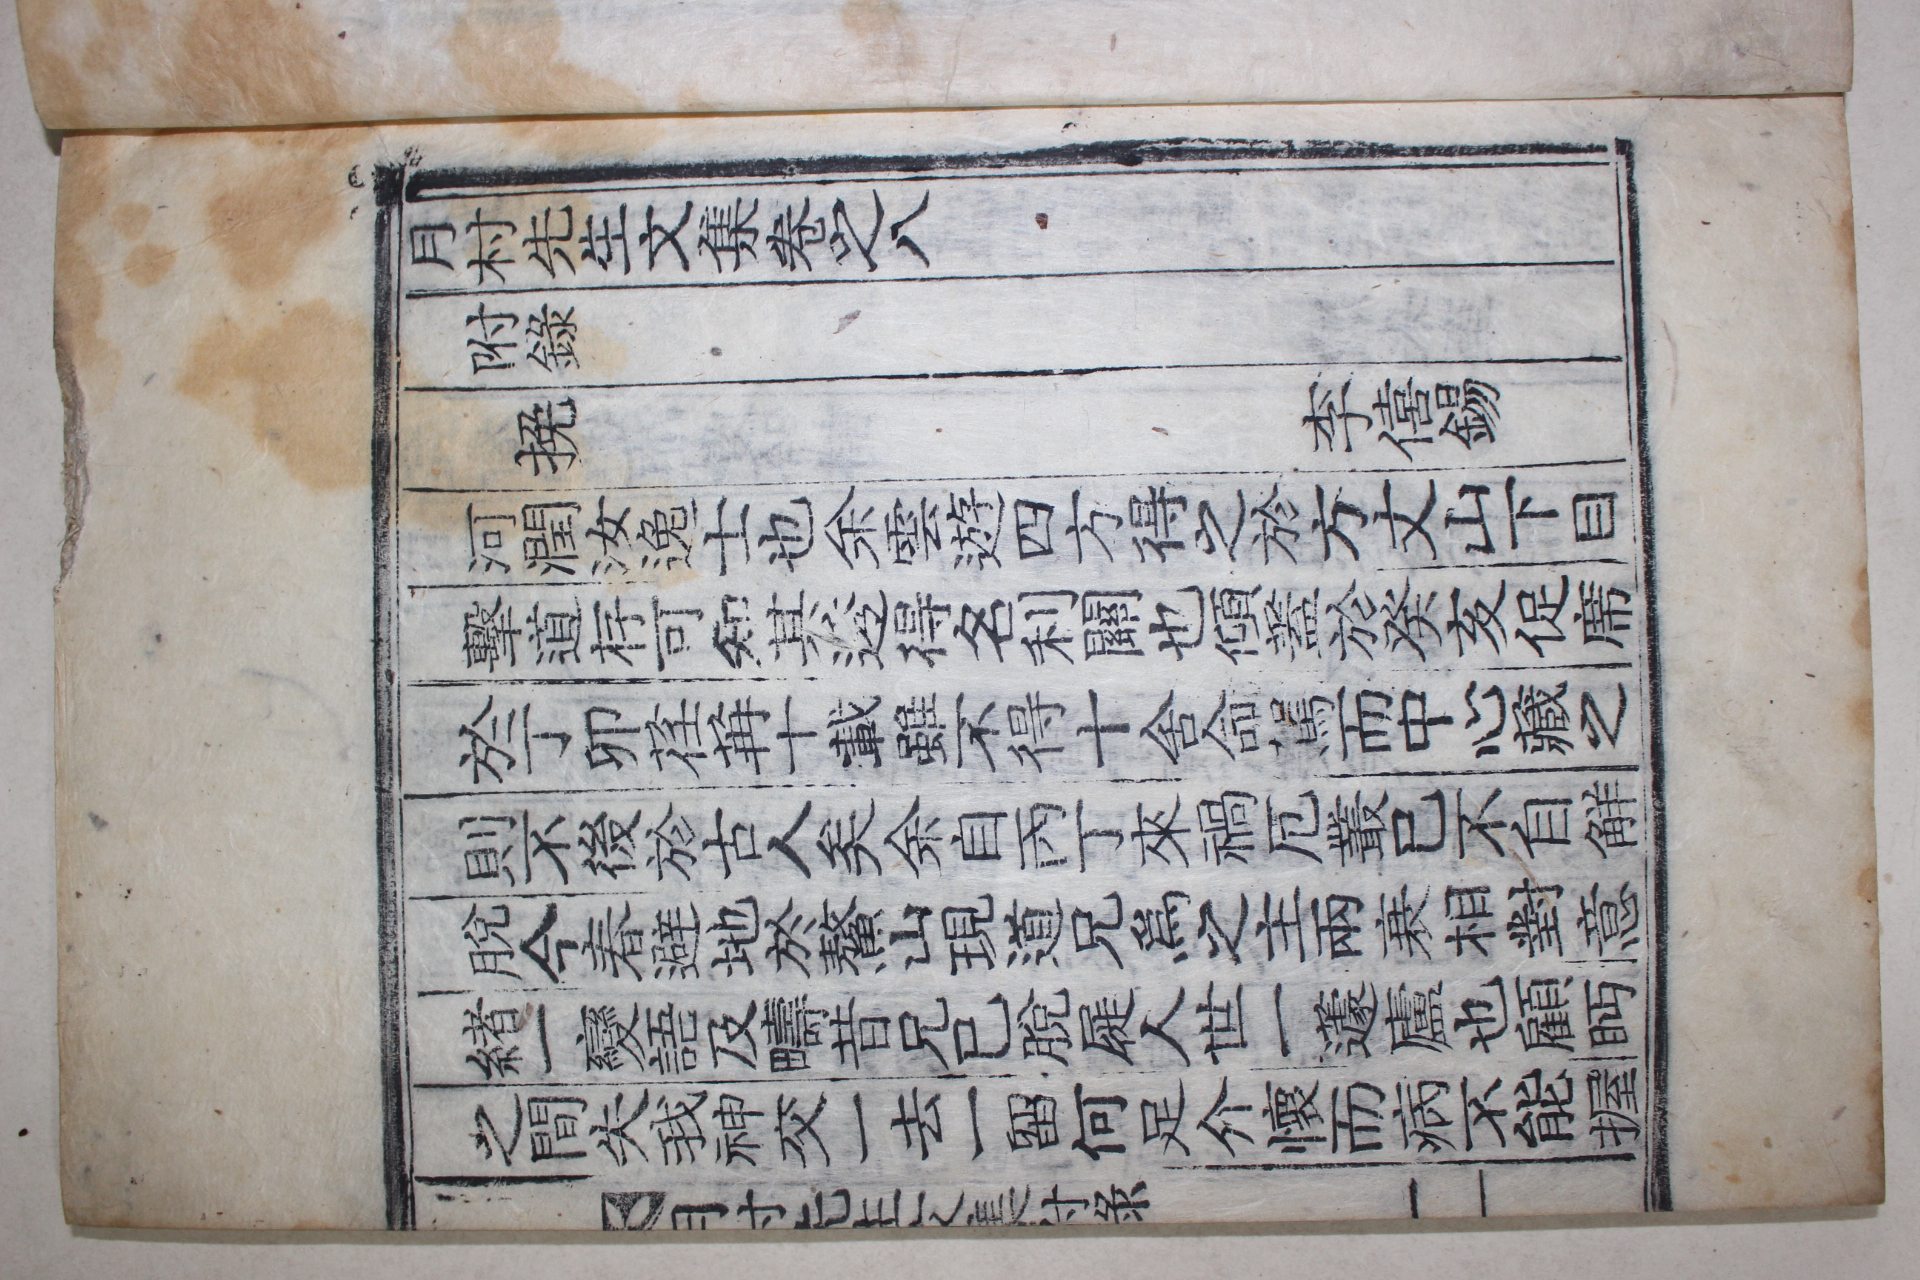 月村先生文集卷之八
附錄
挽 李僖錫
河潤汝逸士也余雲遊四方得之於方丈山下目
擊道存可知其透得名利關也傾蓋於癸亥促席
於丁卯荏苒十載雖不得十舍命駕而中心藏之
則不後於古人矣余自丙丁來禍厄叢已不自解
脫今春避地於鰲山現道兄爲之主兩衰相對意
緖一變語及疇昔兄已脫屣人世一蘧廬也顧眄
之間失我神交一去一留何足介懷而病不能握
月村先生文集附錄 一